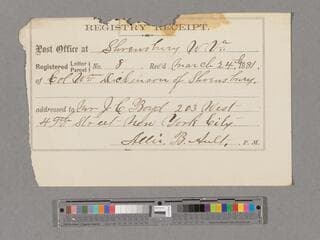 REGISTRY RECEIPT.
Post Office at Shrewsbury W Va
Registered Letter Parcel No. 8 Rec'd march 24th 1881.
of Col Wm Dickenson of Shrewsbury,
addressed to Mr J. C. Boyd 203 West
49th Street New York City
B. Ault, P. M.